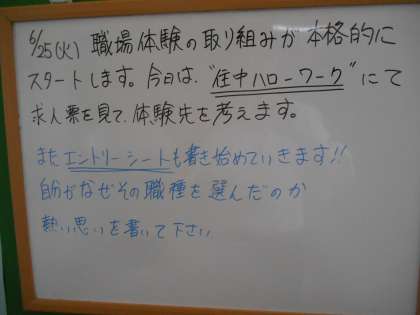 6/25(火) 職場体験の取り組みが本格的に
スタートします。今日は、"住中ハローワーク"にて
求人票を見て、体験先を考えます。
またエントリーシートも書き始めていきます!!
自分がなぜその職種を選んだのか
熱い思いを書いて下さい